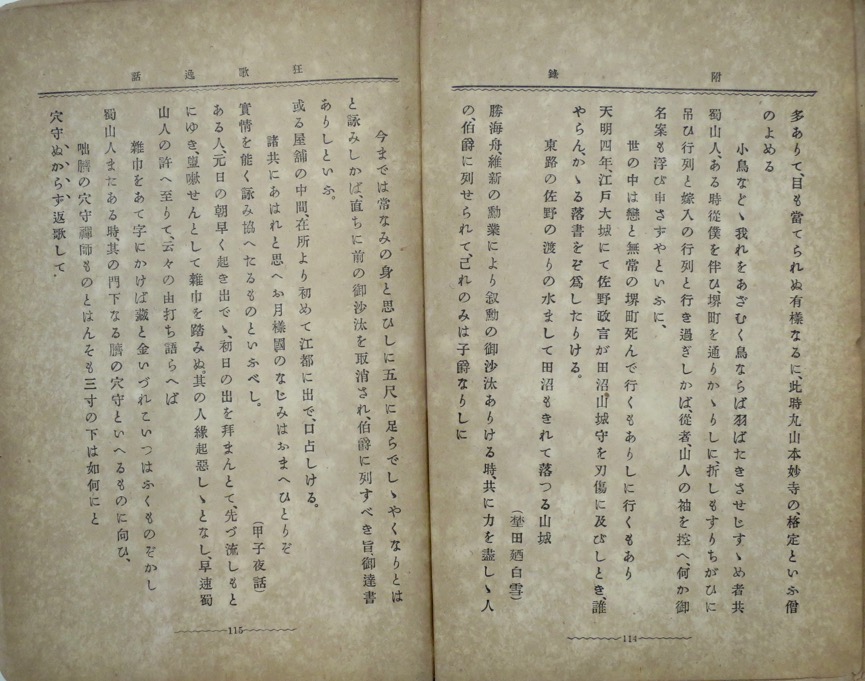 附錄
多ありて、目も當てられぬ有樣なるに、此時丸山本妙寺の、格定といふ僧
のよめる
小鳥などゝ我れをあざむく鳥ならば羽ばたきさせじすゞめ者共
蜀山人、ある時從僕を伴ひ、堺町を通りかゝりしに、折しもすりちがひに
吊ひ行列と嫁入の行列と行き過ぎしかば、從者、山人の袖を控へ、何か御
名案も浮び申さずやといふに、
世の中は戀と無常の堺町死んで行くもありしに行くもあり
天明四年、江戸大城にて佐野政言が田沼山城守を刃傷に及びしとき、誰
やらん、かゝる落書をぞ爲したりける。
東路の佐野の渡りの水まして田沼もきれて落つる山城
(埜田廼白雪)
勝海舟、維新の勳業により叙勳の御沙汰ありける時、共に力を盡しゝ人
の、伯爵に列せられて、己れのみは子爵なりしに
114
狂歌逸話
今までは常なみの身と思ひしに五尺に足らでしゝやくなりとは
と詠みしかば、直ちに前の御沙汰を取消され、伯爵に列すべき旨御達書
ありしといふ。
或る屋舖の中間、在所より初めて江都に出で、口占しける。
諸共にあはれと思へお月樣國のなじみはおまへひとりぞ
實情を能く詠み協へたるものといふべし。
(甲子夜話)
ある人、元日の朝早く起き出でゝ、初日の出を拜まんとて、先づ流しもと
にゆき、嗽せんとして雜巾を踏みぬ。其の人緣起惡しゝとなし、早速蜀
山人の許へ至りて、云々の由打ち語らへば
雜巾をあて字にかけば藏と金いづれこいつはふくものぞかし
蜀山人またある時其の門下なる臍の穴守といへるものに向ひ、
咄臍の穴守禪師ものとはんそも三寸の下は如何にと
穴守ぬからず返歌して、
115